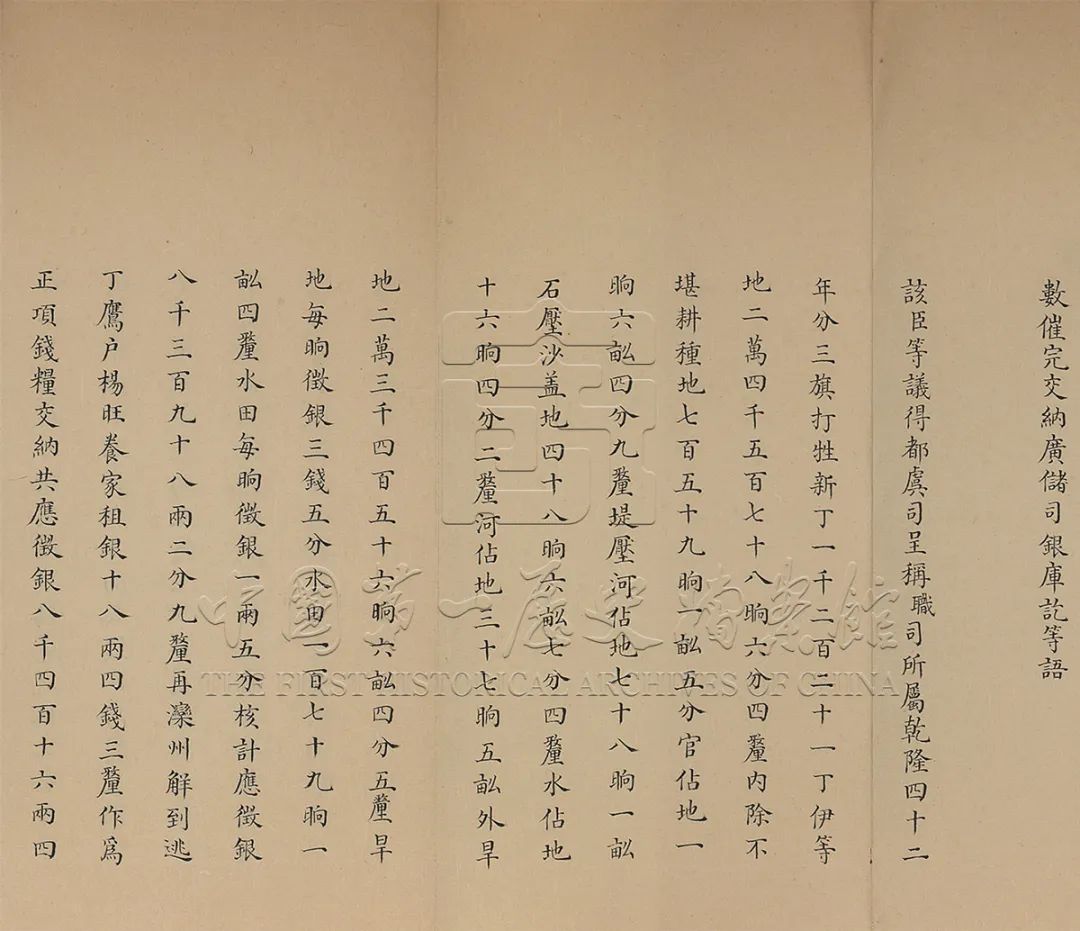 數催完交納廣儲司銀庫訖等語
該臣等議得都虞司呈稱職司所屬乾隆四十二
年分三旗打牲新丁一千二百二十一丁伊等
地二萬四千五百七十八晌六分四釐內除不
堪耕種地七百五十九晌一畆五分官佔地一
晌六畆四分九釐堤壓河佔地七十八晌一畆
石壓沙盖地四十八晌六畆七分四釐水佔地
十六晌四分二釐河佔地三十七晌五畆外旱
地二萬三千四百五十六晌六畆四分五釐旱
地每晌徵銀三錢五分水田一百七十九晌一
畆四釐水田每晌徵銀一兩五分核計應徵銀
八千三百九十八兩二分九釐再灤州解到逃
丁鷹户楊旺養家租銀十八兩四錢三釐作爲
正項錢糧交納共應徵銀八千四百十六兩四
中國第一歷史檔案館
THE FIRST HISTORICAL ARCHIVES OF CHINA